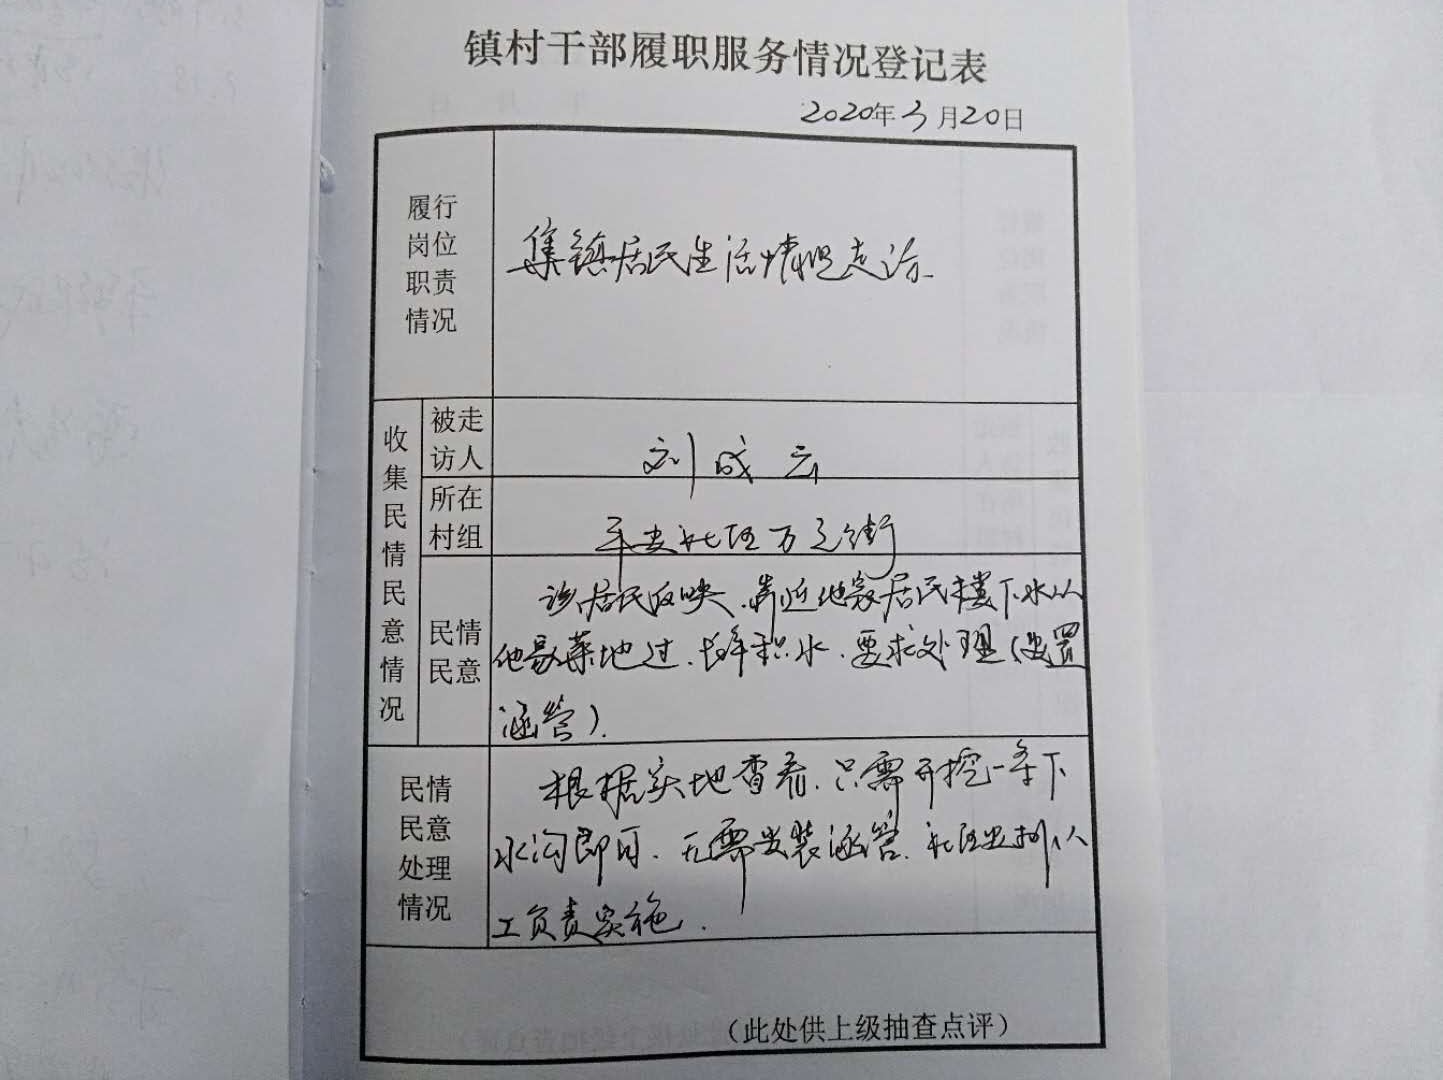 镇村干部履职服务情况登记表
2020年3月20日
履行
岗位
职责
情况
集镇居民生活情况走访
收集民情民意情况
被走
访人
刘成云
所在
村组
平安社区万元街
民情
民意
该居民反映、靠近他家居民楼下水从
他家菜地过、长年积水、要求处理(安置
涵管).
民情
民意
处理
情况
根据实地查看、只需开挖一条下
水沟即可、无需安装涵管、社区安排人
工负责实施.
(此处供上级抽查点评)